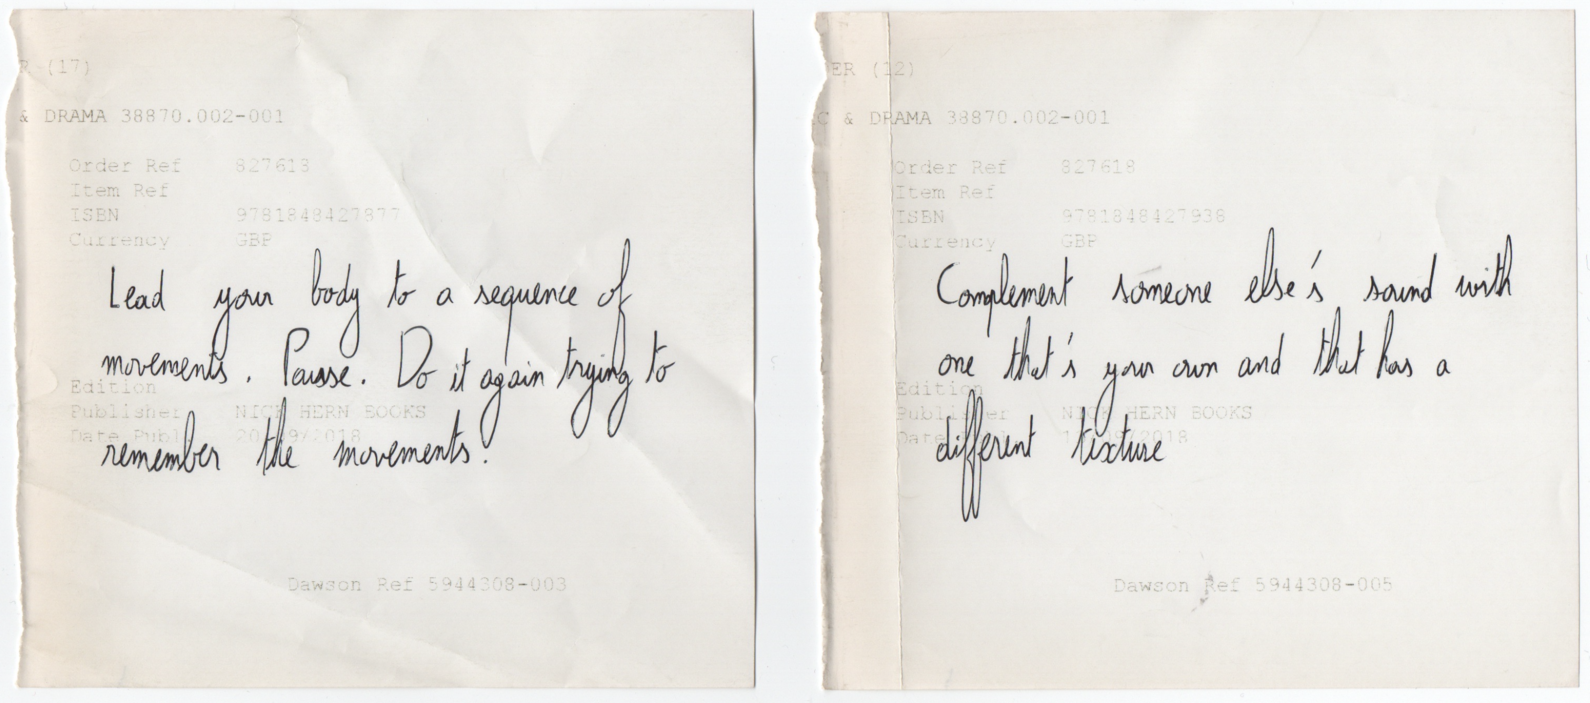 (17)
& DRAMA 38870.002-001
Order Ref 827618
Item Ref
ISBN 9781848427877
Currency GBP
Lead your body to a sequence of
movements. Pausse. Do it again trying to
remember the movements.
Edition
Publisher NICK HERN BOOKS
Date Publ 20/09/2018
Dawson Ref 5944308-003
ER (12)
C & DRAMA 38870.002-001
Order Ref 827618
Item Ref
ISBN 9781848427938
Currency GBP
Complement someone else's sound with
one that's your own and that has a
different texture
Edition
Publisher NICK HERN BOOKS
Dawson Ref 5944308-005